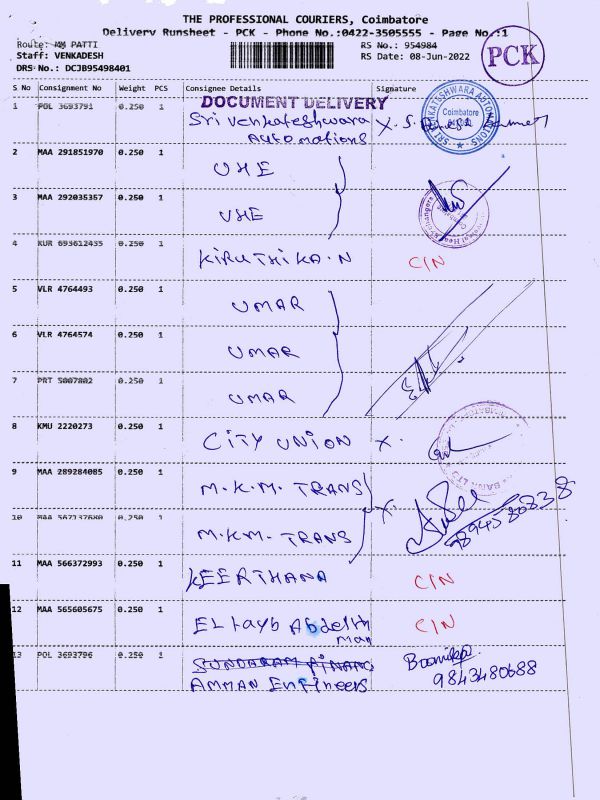 THE PROFESSIONAL COURIERS, Coimbatore
Delivery Runsheet - PCK - Phone No.:0422-3505555 - Page No.:1
Route: MM PATTI
Staff: VENKADESH
DRS No.: DCJB95498401
RS No.: 954984
RS Date: 08-Jun-2022
PCK
S No Consignment No Weight PCS Consignee Details Signature
DOCUMENT DELIVERY
1 POL 3693791 0.250 1 Sri Venkateshwara Automations X S.
SRI VENKATESHWARA AUTOMATIONS Coimbatore
2 MAA 291851970 0.250 1 UHE
3 MAA 292035357 0.250 1 UHE
4 KUR 693612435 0.250 1 KIRUTHIKA.N C/N
5 VLR 4764493 0.250 1 UMAR
6 VLR 4764574 0.250 1 UMAR
7 PRT 5007802 0.250 1 UMAR
8 KMU 2220273 0.250 1 CITY UNION X.
9 MAA 289284085 0.250 1 M.K.M. TRANS X.
9894580838
10 MAA 0.250 1 M.K.M. TRANS
11 MAA 566372993 0.250 1 KEERTHANA C/N
12 MAA 565605675 0.250 1 ELtayb Abdelrh man C/N
13 POL 3693796 0.250 1 SUNDARAM FINANC
AMMAN Engineers
9843480688